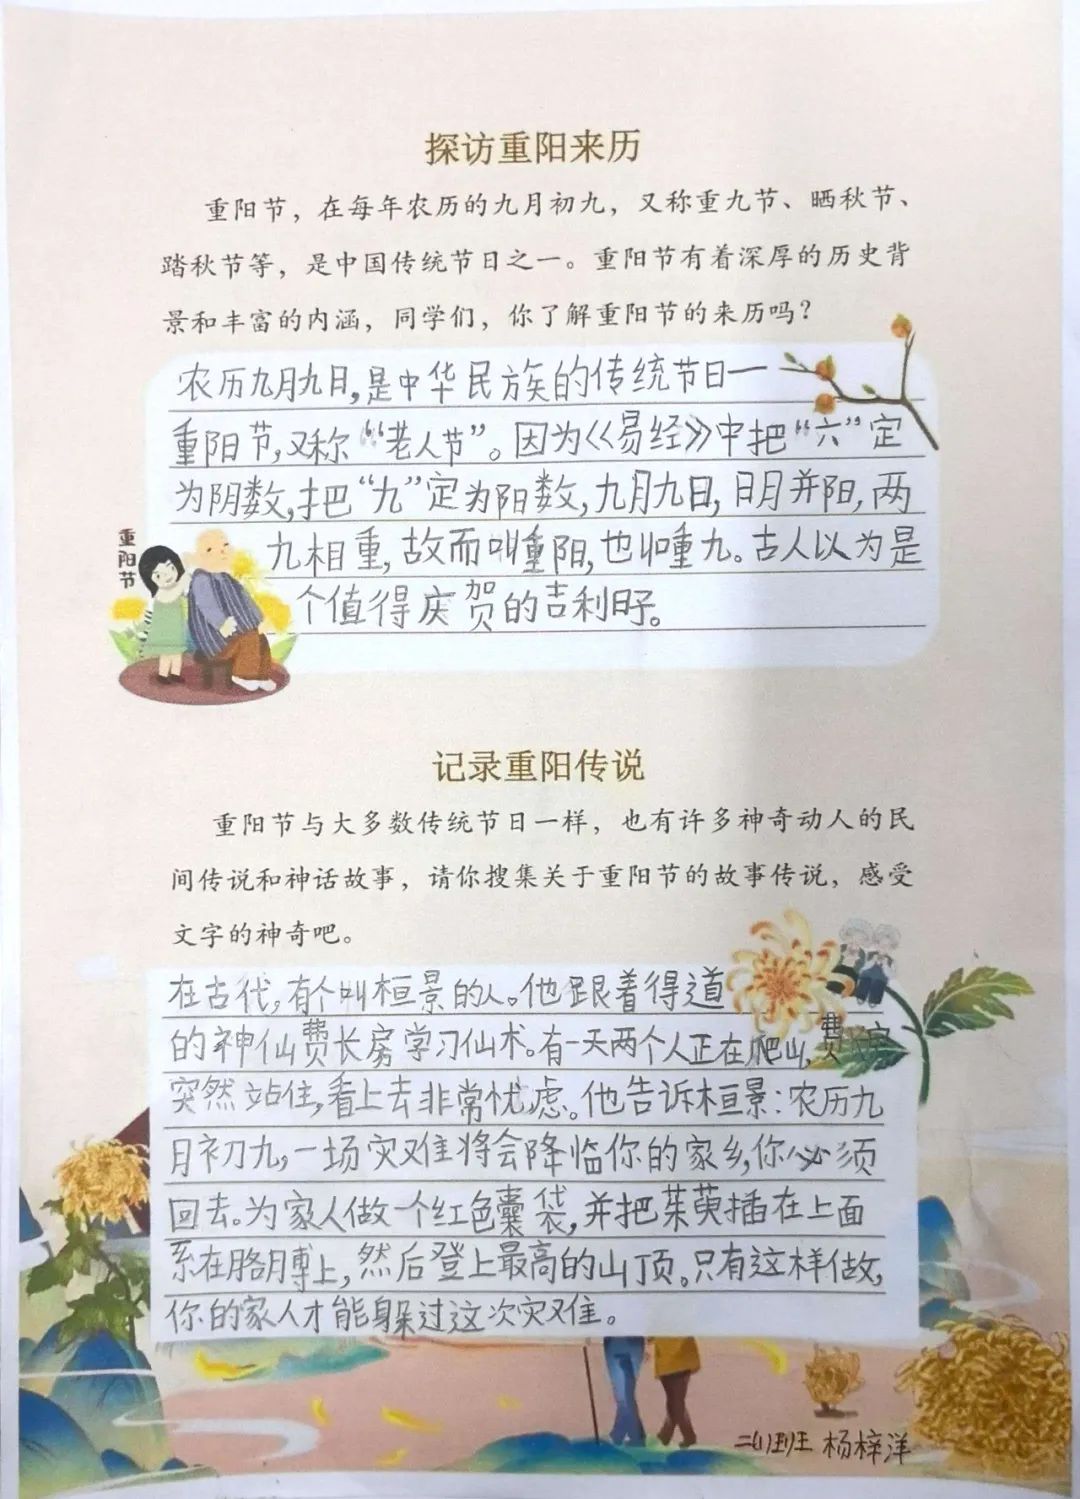 探访重阳来历
重阳节，在每年农历的九月初九，又称重九节、晒秋节、
踏秋节等，是中国传统节日之一。重阳节有着深厚的历史背
景和丰富的内涵，同学们，你了解重阳节的来历吗？
农历九月九日，是中华民族的传统节日一
重阳节，又称“老人节”。因为《易经》中把“六”定
为阴数，把“九”定为阳数，九月九日，日月并阳，两
九相重，故而叫重阳，也叫重九。古人以为是
个值得庆贺的吉利日子。
重阳节
记录重阳传说
重阳节与大多数传统节日一样，也有许多神奇动人的民
间传说和神话故事，请你搜集关于重阳节的故事传说，感受
文字的神奇吧。
在古代，有个叫桓景的人。他跟着得道
的神仙费长房学习仙术。有一天两个人正在爬山，费长房
突然站住，看上去非常忧虑。他告诉桓景：农历九
月初九，一场灾难将会降临你的家乡，你必须
回去。为家人做一个红色囊袋，并把茱萸插在上面
系在胳膊上，然后登上最高的山顶。只有这样做，
你的家人才能躲过这次灾难。
班 杨梓洋